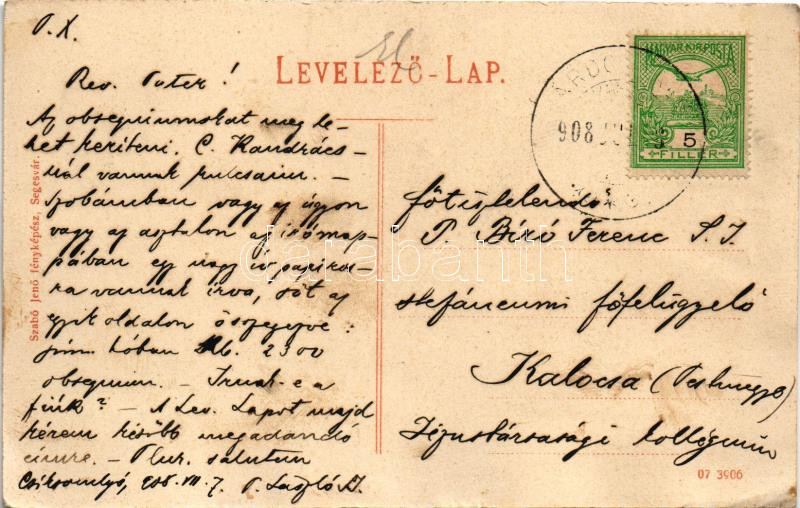 P. X.
LEVELEZŐ-LAP.
Rev. Pater!
Az obsequiumokat meg le-
het keríteni. C. Kandrács-
nál vannak kulcsaim. –
Szobámban vagy az ágyon
vagy az asztalon az írómap-
pában egy nagy ív papiros-
ra vannak írva, sőt az
egyik oldalon összegezve:
jún. hóban 2300
obsequium. – Írnak-e a
fiúk? – A Lev. Lapot majd
kérem később megadandó
címre. – Plur. salutem
Csíksomlyó, 908. VII. 7. P. László SJ.
Szabó Jenő fényképész, Segesvár.
MAGYAR KIR. POSTA
5
FILLÉR
908
főtisztelendő
P. Bíró Ferenc S. I.
stefáneumi főfelügyelő
Kalocsa (Pestmegye)
Jézustársasági kollégium
07 3906
darabanth